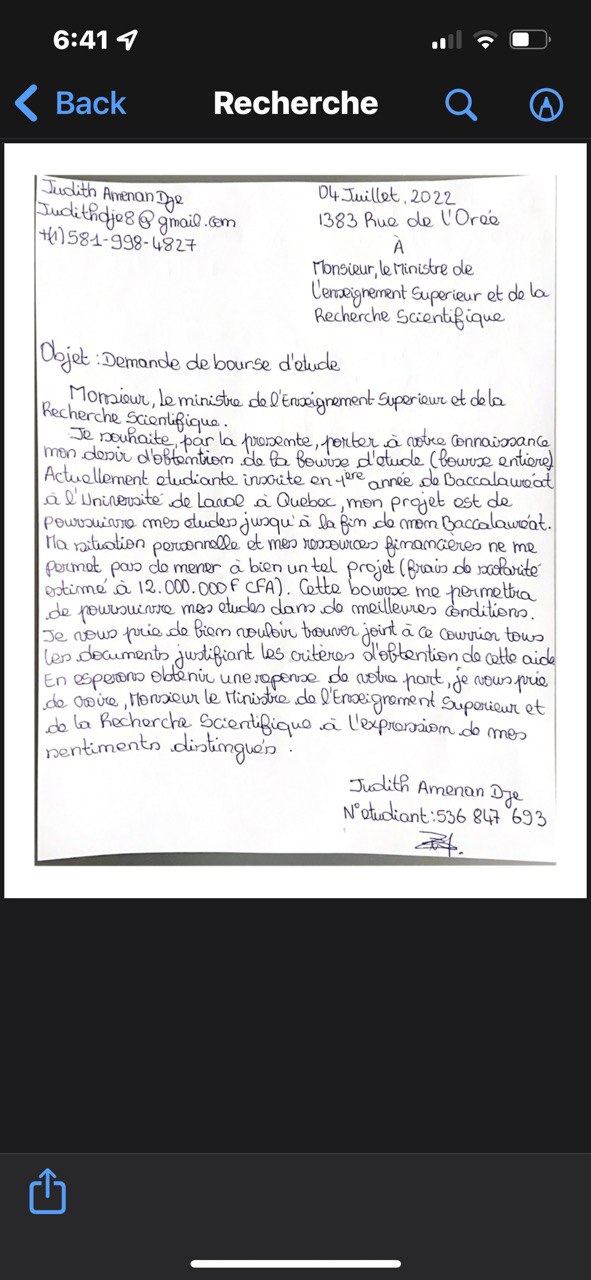 6:41
Back
Recherche
Judith Amenan Dje
Judithdje8@gmail.com
+(1)581-998-4827
04 Juillet, 2022
1383 Rue de l'Orée
À
Monsieur, le Ministre de
L'enseignement Superieur et de la
Recherche Scientifique
Objet : Demande de bourse d'etude
Monsieur, le ministre de l'Enseignement Superieur et de la
Recherche Scientifique.
Je souhaite, par la presente, porter à votre connaissance
mon desir d'obtention de la bourse d'etude (bourse entiere)
Actuellement etudiante inscrite en 1ère année de Baccalaureat
à l'Université de Laval à Quebec, mon projet est de
poursuivre mes etudes jusqu'à la fin de mon Baccalaureat.
Ma situation personnelle et mes ressources financières ne me
permet pas de mener à bien un tel projet (frais de scolarité
estimé à 12.000.000 F CFA). Cette bourse me permettra
de poursuivre mes etudes dans de meilleures conditions.
Je vous prie de bien vouloir trouver joint à ce courrier tous
les documents justifiant les critères d'obtention de cette aide
En esperons obtenir une reponse de votre part, je vous prie
de croire, Monsieur le Ministre de l'Enseignement Superieur et
de la Recherche Scientifique à l'expression de mes
sentiments distingués.
Judith Amenan Dje
N°etudiant : 536 847 693